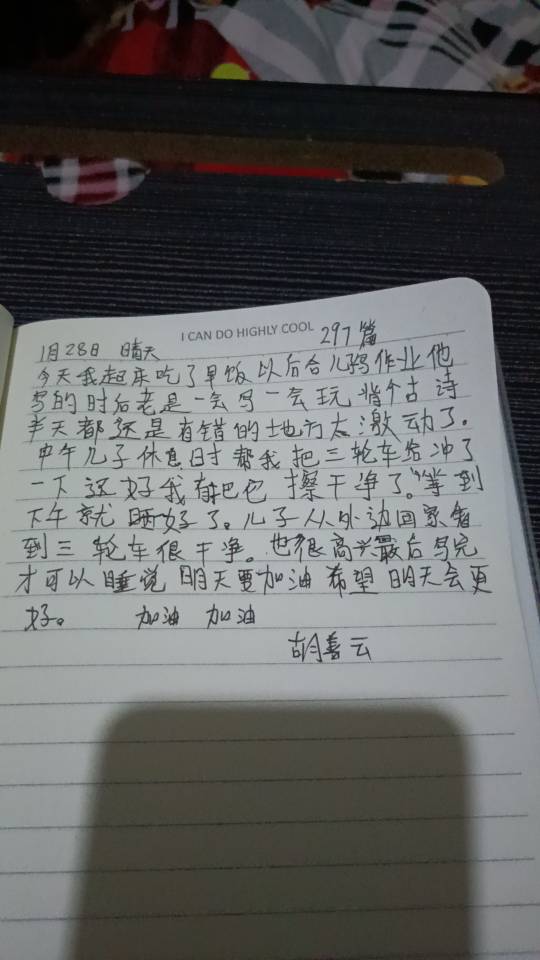 I CAN DO HIGHLY COOL
1月28日 晴天 297篇
今天我起来吃了早饭以后合儿骑作业他
写的时后老是一会写一会玩背个古诗
半天都还是有错的地方太激动了。
中午儿子休息日时帮我把三轮车给冲了
一下还好我有把它擦干净了。等到
下午就晒好了。儿子从外边回家看
到三轮车很干净。也很高兴最后写完
才可以睡觉明天要加油希望明天会更
好。 加油 加油
胡善云